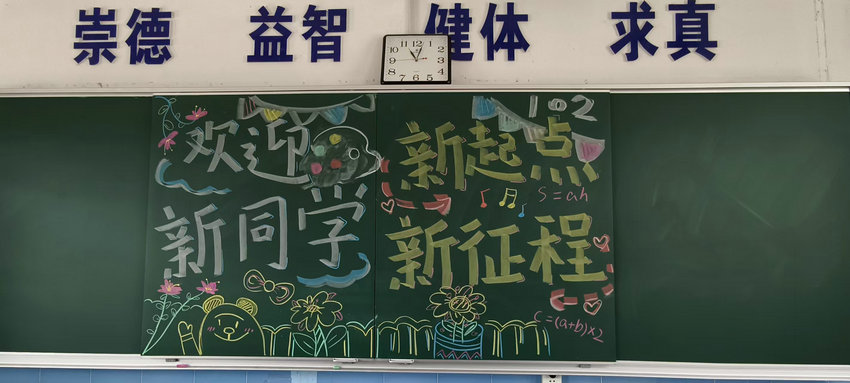 崇德 益智 健体 求真
12 1 2 3 4 5 6 7 8 9 10 11
102
欢迎
新同学
新起点
S=ah
新征程
C=(a+b)×2